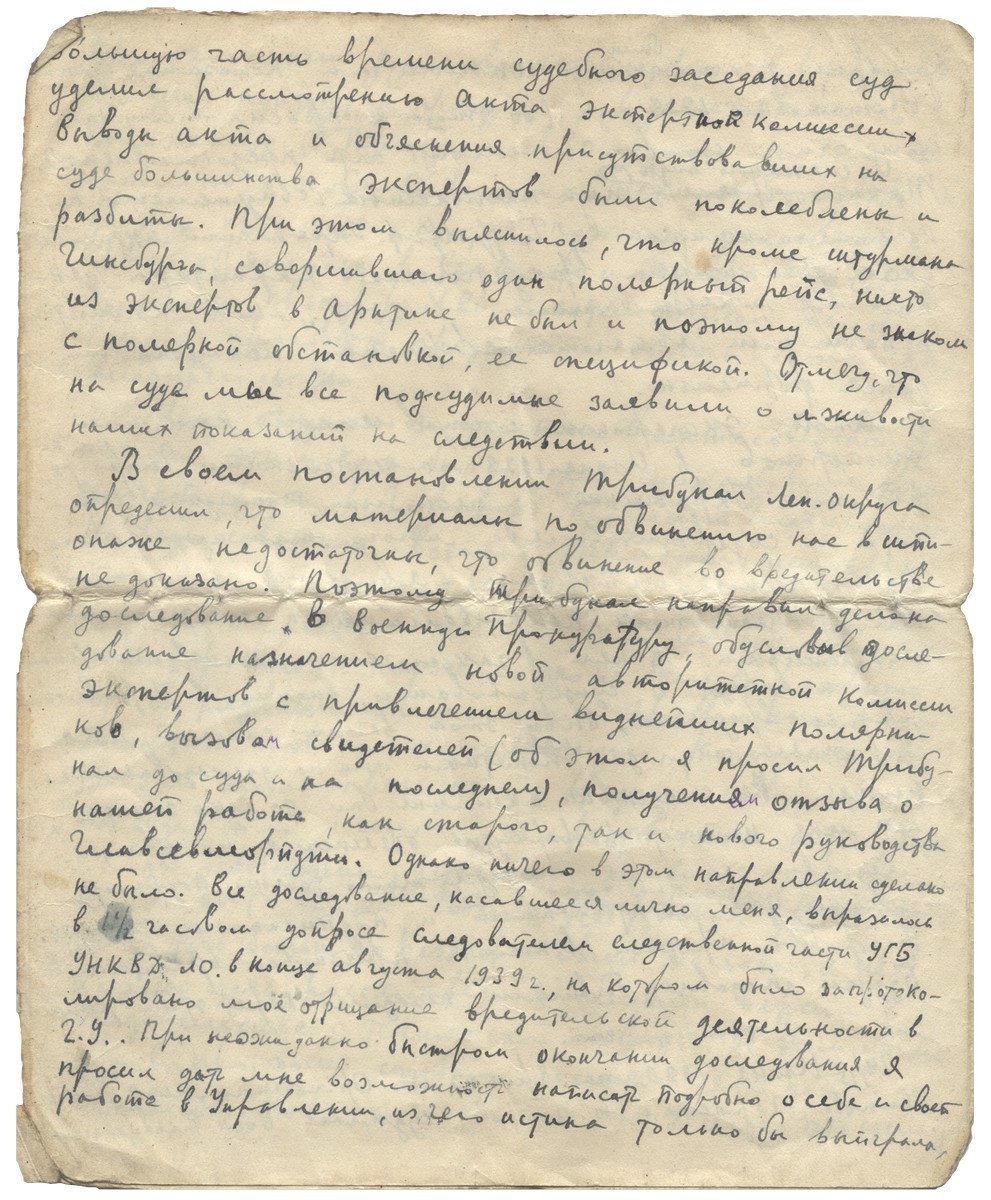 большую часть времени судебного заседания суд
уделил рассмотрению акта экспертной комиссии.
Выводы акта и объяснения присутствовавших на
суде большинства экспертов были поколеблены и
разбиты. При этом выяснилось, что кроме штурмана
Гинсбурга, совершившего один полярный рейс, никто
из экспертов в Арктике не был и поэтому не знаком
с полярной обстановкой, ее спецификой. Отмечу, что
на суде мы все подсудимые заявили о лживости
наших показаний на следствии.
В своем постановлении Трибунал Лен. округа
определил, что материалы по обвинению нас в шпи-
онаже недостаточны, что обвинение во вредительстве
не доказано. Поэтому Трибунал направил дело на
доследование в Военную Прокуратуру, обусловив досле-
дование назначением новой авторитетной комиссии
экспертов с привлечением виднейших полярни-
ков, вызовом свидетелей (об этом я просил Трибу-
нал до суда и на последнем), получением отзыва о
нашей работе, как старого, так и нового руководства
Главсевморпути. Однако ничего в этом направлении сделано
не было. Все доследование, касавшееся лично меня, выразилось
в 1½ часовом допросе следователем следственной части УГБ
УНКВД ЛО. в конце августа 1939 г., на котором было запротоко-
лировано мое отрицание вредительской деятельности в
Г.У.. При неожиданно быстром окончании доследования я
просил дать мне возможность написать подробно о себе и своей
работе в Управлении, из чего истина только бы выиграла,